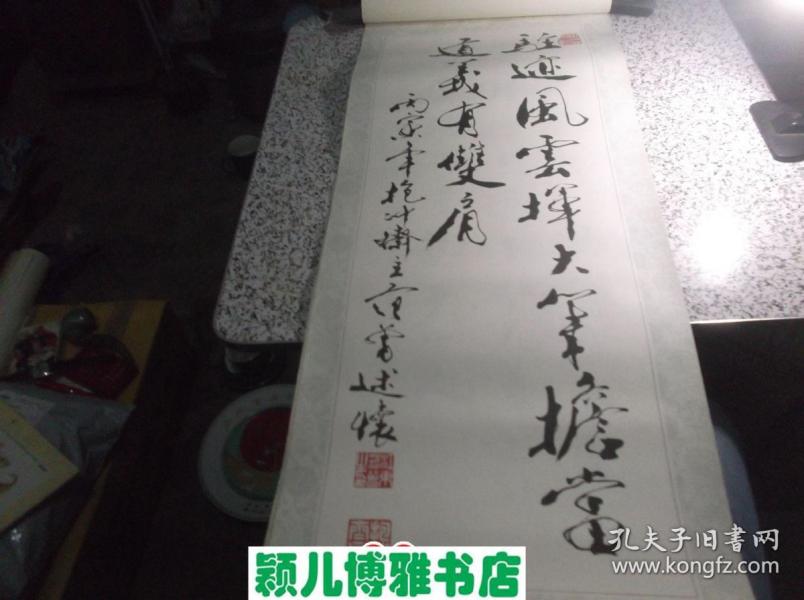 迹風雲揮大筆擔當
道義有雙肩
丙寅年抱冲齋主范曾述懷
颖儿博雅书店
孔夫子旧书网
www.kongfz.com